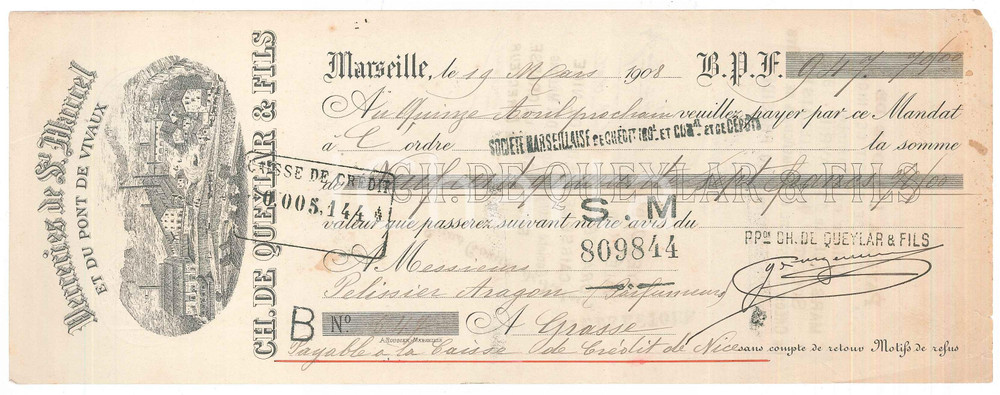 Verreries de St Marcel
ET DU PONT DE VIVAUX
CH. DE QUEYLAR & FILS
Marseille, le 19 Mars 1908 B.P.F. 947.
Au Quinze Avril prochain veuillez payer par ce Mandat
à L' ordre la somme
SOCIÉTÉ MARSEILLAISE DE CRÉDIT INDL ET COMAL ET DE DÉPÔTS
CH. DE QUEYLAR & FILS
SSE DE CRÉDIT
0,005,144
valeur que passerez suivant notre avis du
S.M
809844
PPON CH. DE QUEYLAR & FILS
A Messieurs
Pelissier Aragon Parfumeurs
B No A Grasse
Payable à la Caisse de Crédit de Nice sans compte de retour Motifs de refus